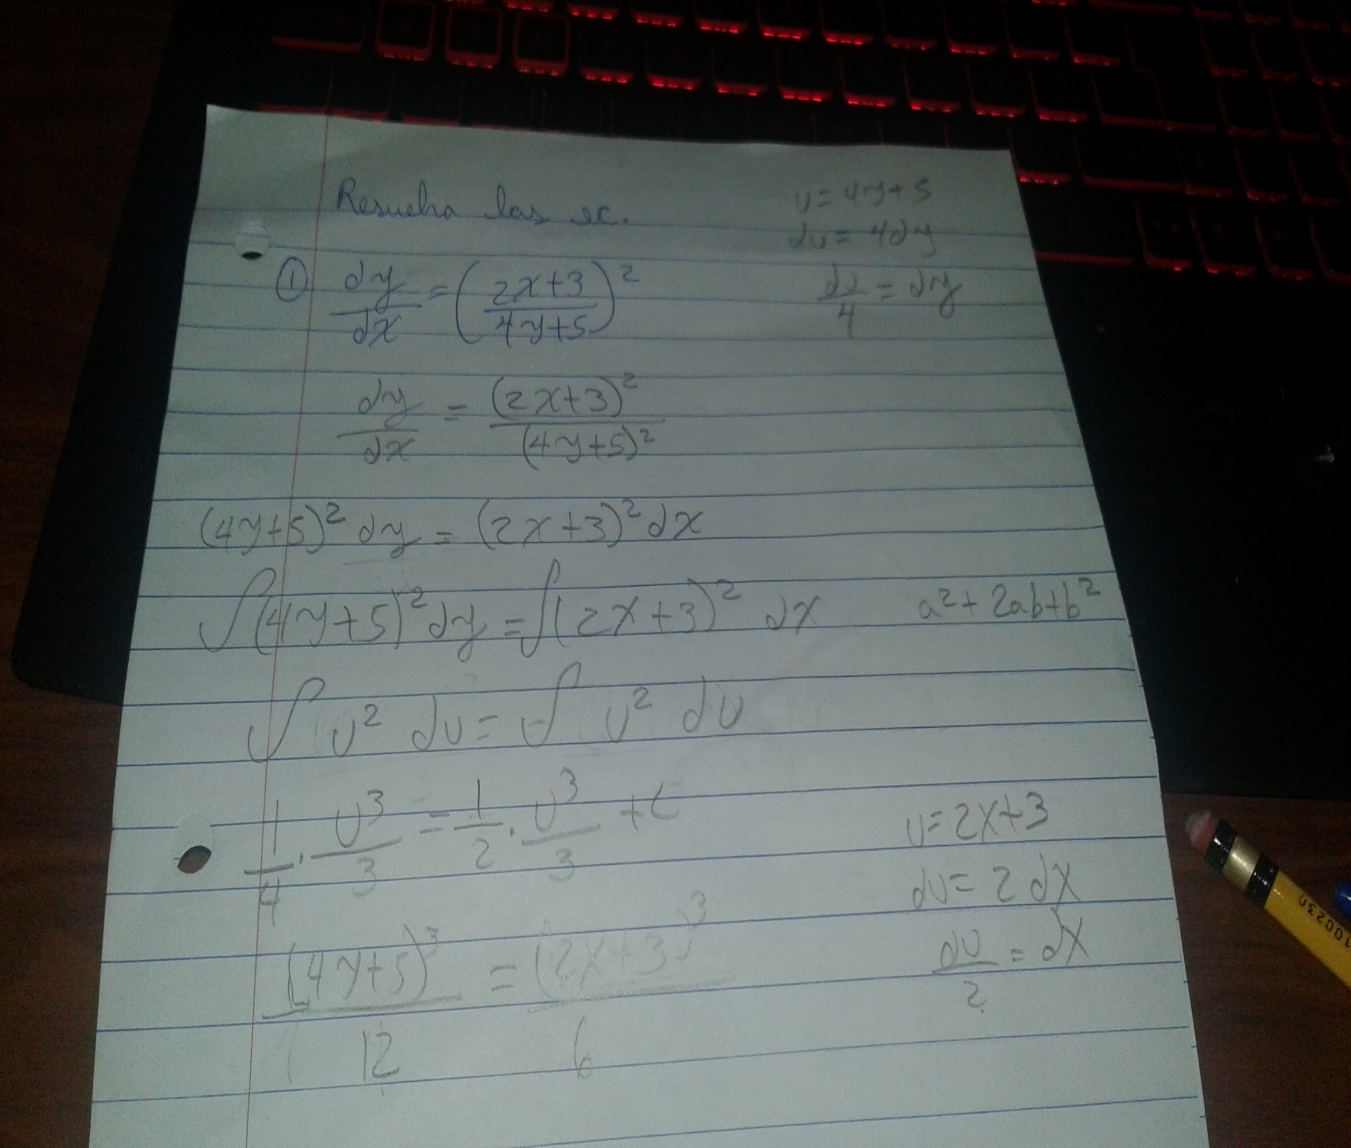 Resuelva las ec.
u=4y+5
du=4dy
du/4=dy
① dy/dx=((2x+3)/(4y+5))²
dy/dx=(2x+3)²/(4y+5)²
(4y+5)² dy=(2x+3)² dx
∫(4y+5)² dy=∫(2x+3)² dx
a²+2ab+b²
∫ u² du=∫ u² du
1/4 · u³/3=1/2 · u³/3 +c
u=2x+3
du=2dx
du/2=dx
(4y+5)³/12=(2x+3)³/6
100230